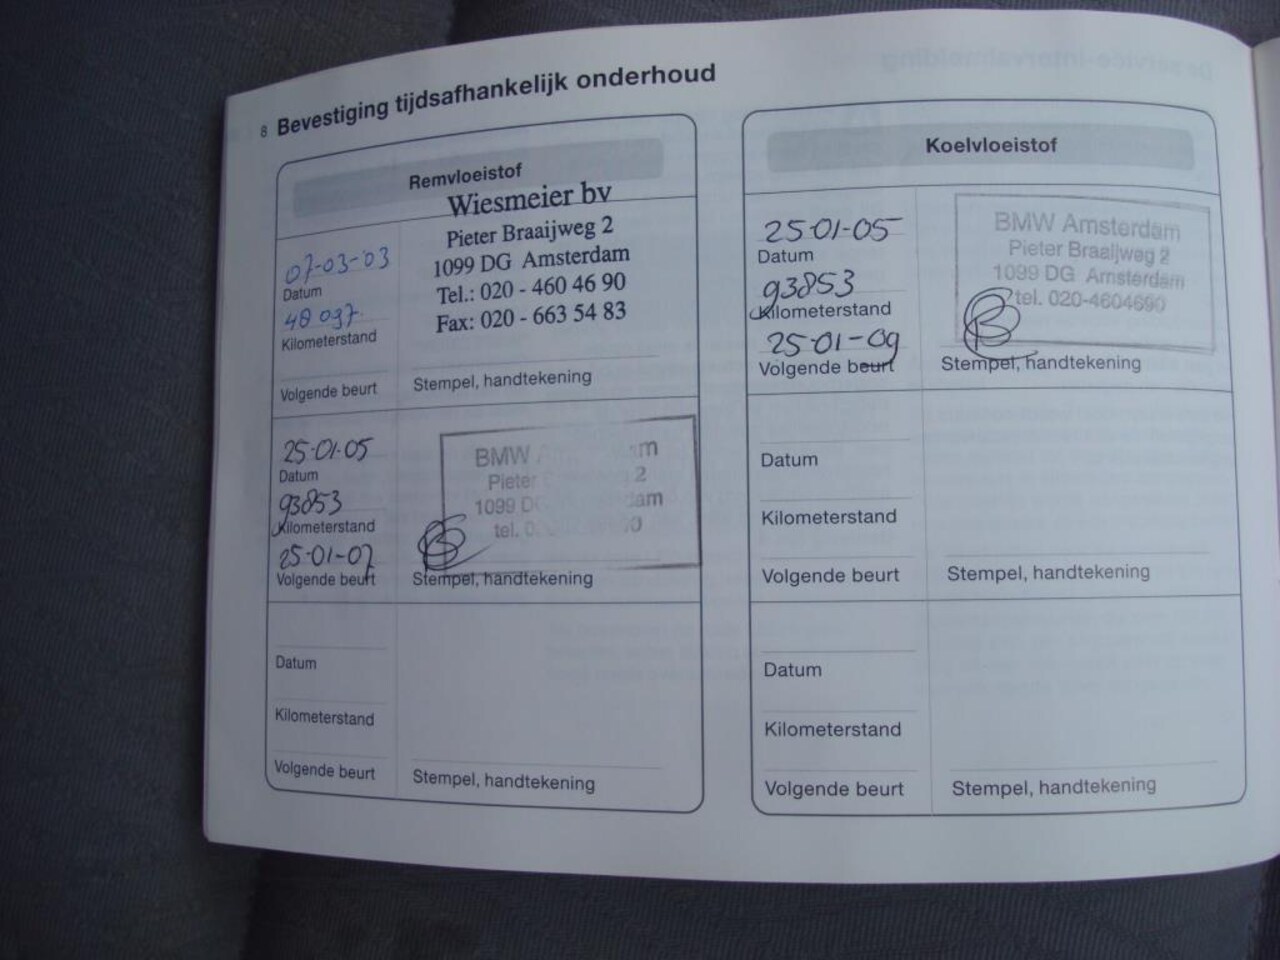 8 Bevestiging tijdsafhankelijk onderhoud
Remvloeistof
Wiesmeier bv
Pieter Braaijweg 2
1099 DG Amsterdam
Tel.: 020 - 460 46 90
Fax: 020 - 663 54 83
07-03-'03
Datum
48 097
Kilometerstand
Volgende beurt
Stempel, handtekening
25-01-05
Datum
93853
Kilometerstand
25-01-07
Volgende beurt
BMW
Pieter 2
1099
tel.
Stempel, handtekening
Datum
Kilometerstand
Volgende beurt
Stempel, handtekening
Koelvloeistof
25-01-05
Datum
93853
Kilometerstand
25-01-09
Volgende beurt
BMW Amsterdam
Pieter Braaijweg 2
1099 DG Amsterdam
tel. 020-4604690
Stempel, handtekening
Datum
Kilometerstand
Volgende beurt
Stempel, handtekening
Datum
Kilometerstand
Volgende beurt
Stempel, handtekening